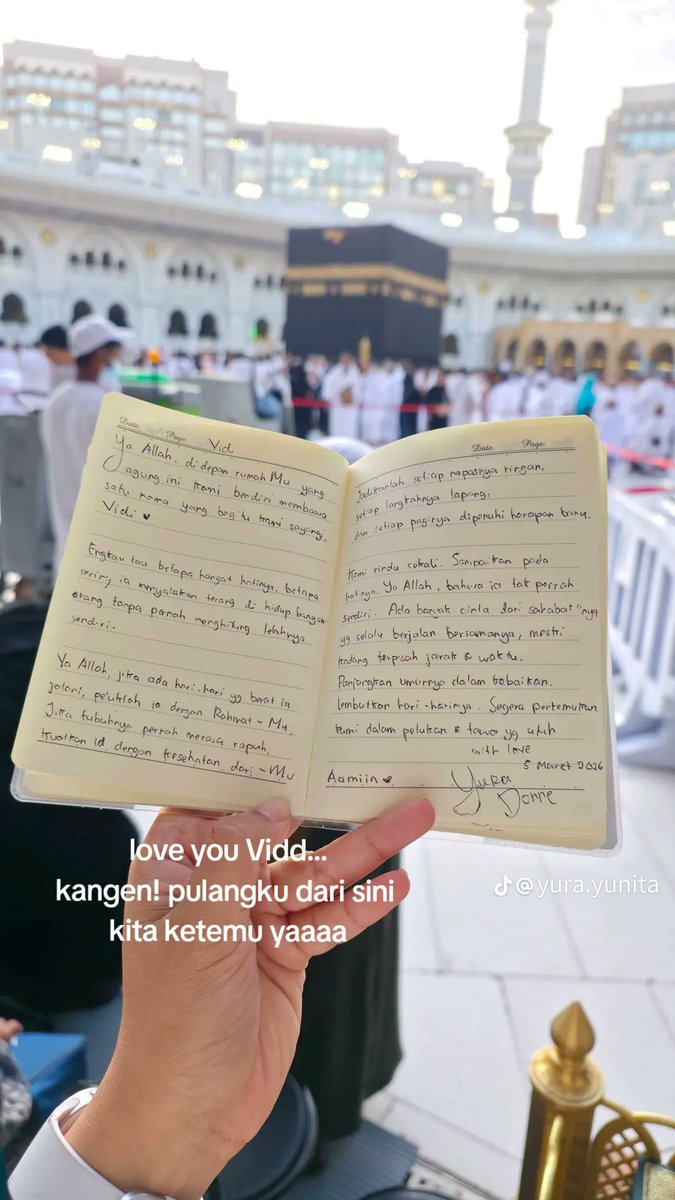 Date. Page. Vidi
Ya Allah, di depan rumah Mu yang
agung ini kami berdiri membawa
satu nama yang begitu kami sayangi,
Vidi
Engkau tau betapa hangat hatinya, betapa
sering ia menyalakan terang di hidup banyak
orang tanpa pernah menghitung lelahnya
sendiri.
Ya Allah, jika ada hari-hari yg berat ia
jalani, peluklah ia dengan Rahmat-Mu.
Jika tubuhnya pernah merasa rapuh,
kuatkan ia dengan kesehatan dari-Mu
Date. Page.
Jadikanlah setiap napasnya ringan,
setiap langkahnya lapang,
dan setiap paginya dipenuhi harapan baru.
Kami rindu sekali. Sampaikan pada
hatinya, Ya Allah, bahwa ia tak pernah
sendiri. Ada banyak cinta dari sahabat"nya
yg selalu berjalan bersamanya, meski
kadang terpisah jarak & waktu.
Panjangkan umurnya dalam kebaikan.
lembutkan hari-harinya. Segera pertemukan
kami dalam pelukan & tawa yg utuh
with love
5 Maret 2026
Aamiin
Yura
Donne
love you Vidd...
kangen! pulangku dari sini
kita ketemu yaaaa
@yura.yunita